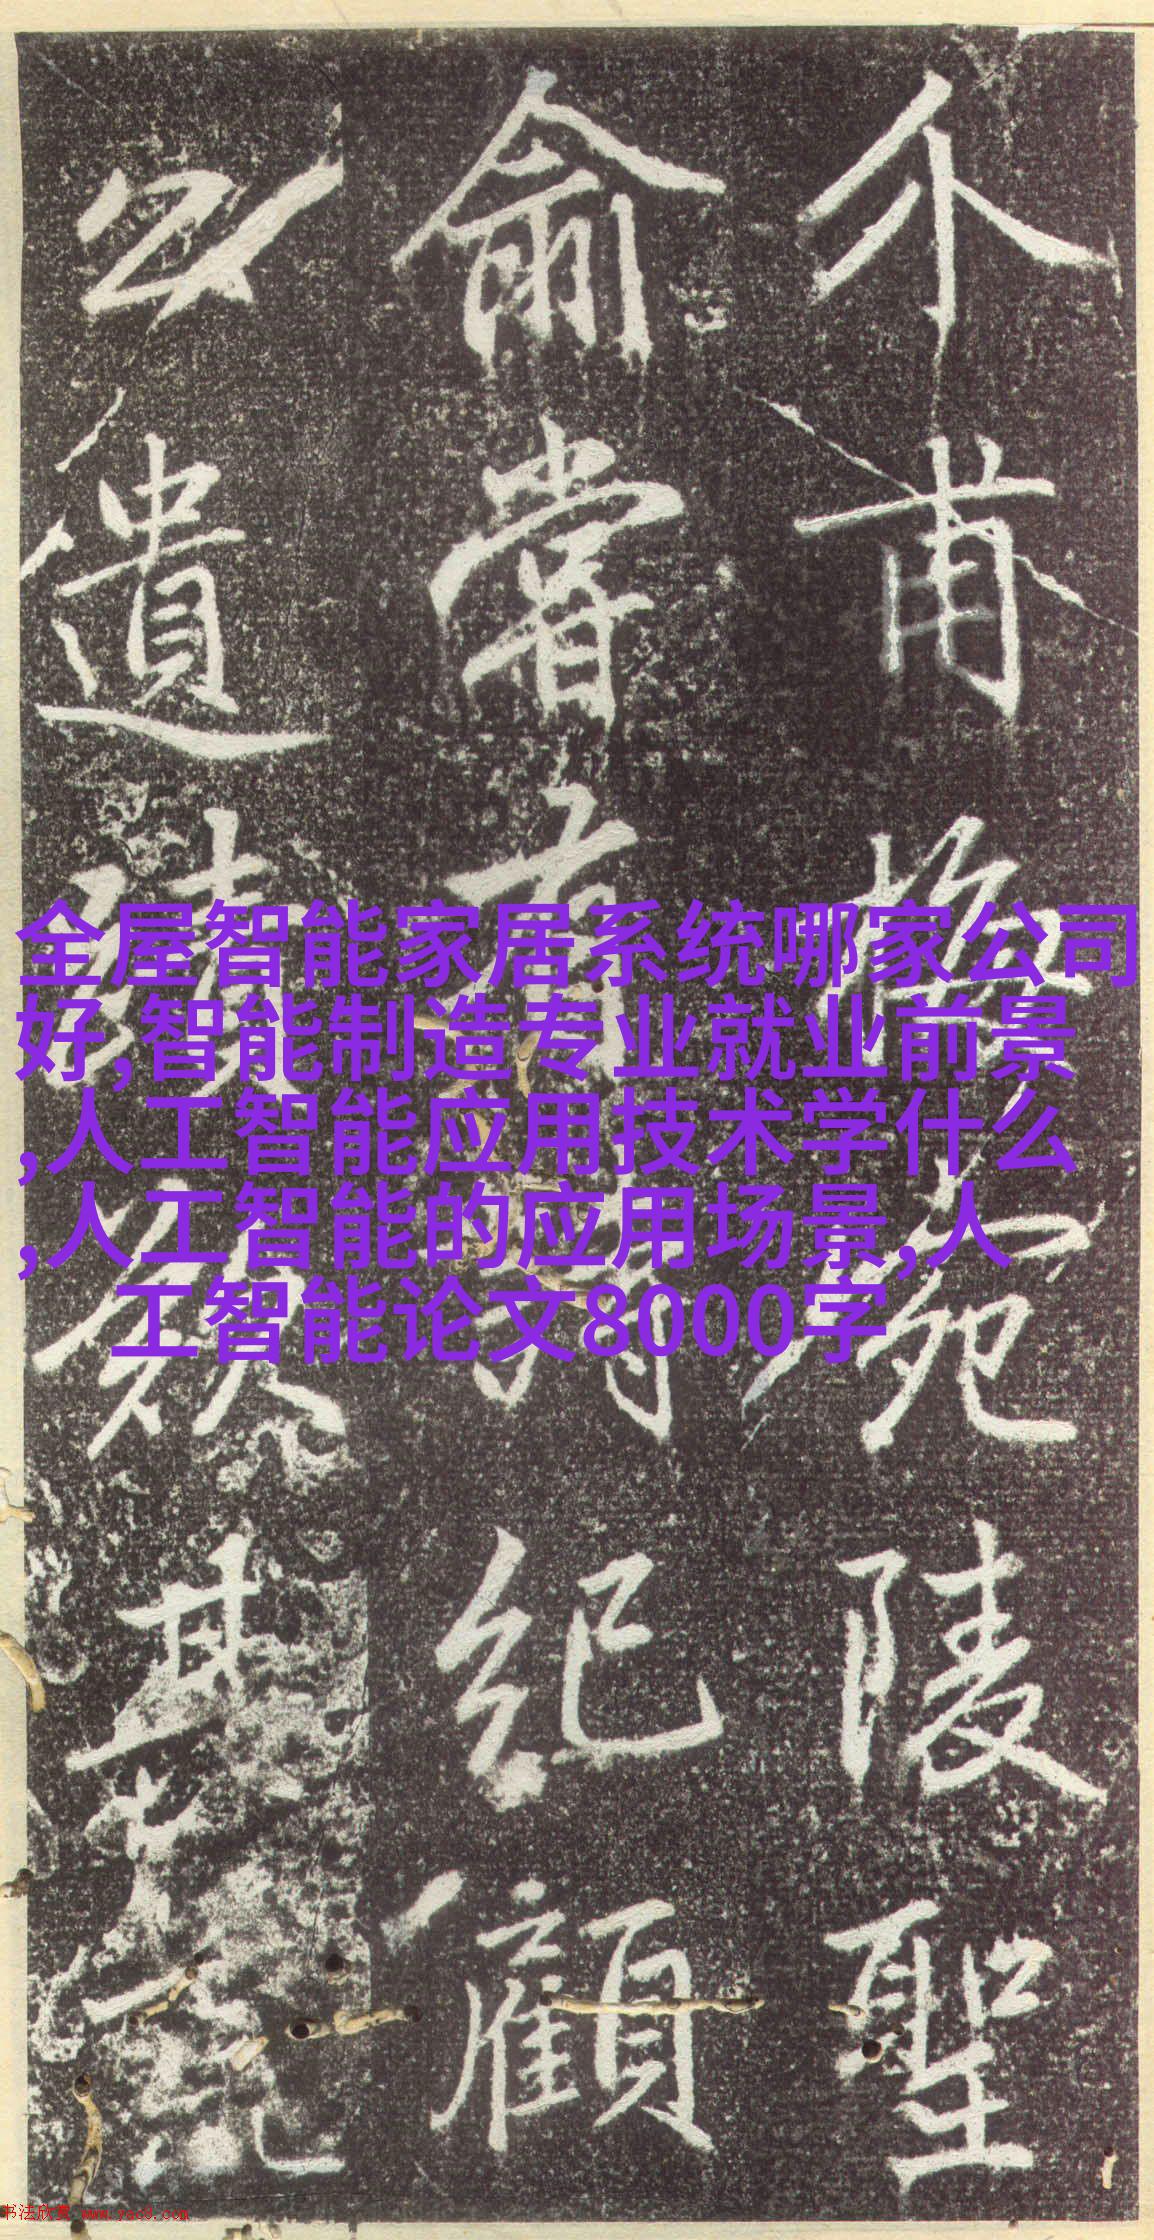 介甫㮣宛陵聖
俞嘗有詩紀顧
公遺蹟
其
全屋智能家居系统哪家公司
好,智能制造专业就业前景
,人工智能应用技术学什么
,人工智能的应用场景,人
工智能论文8000字
书法欣赏 www.yac8.com